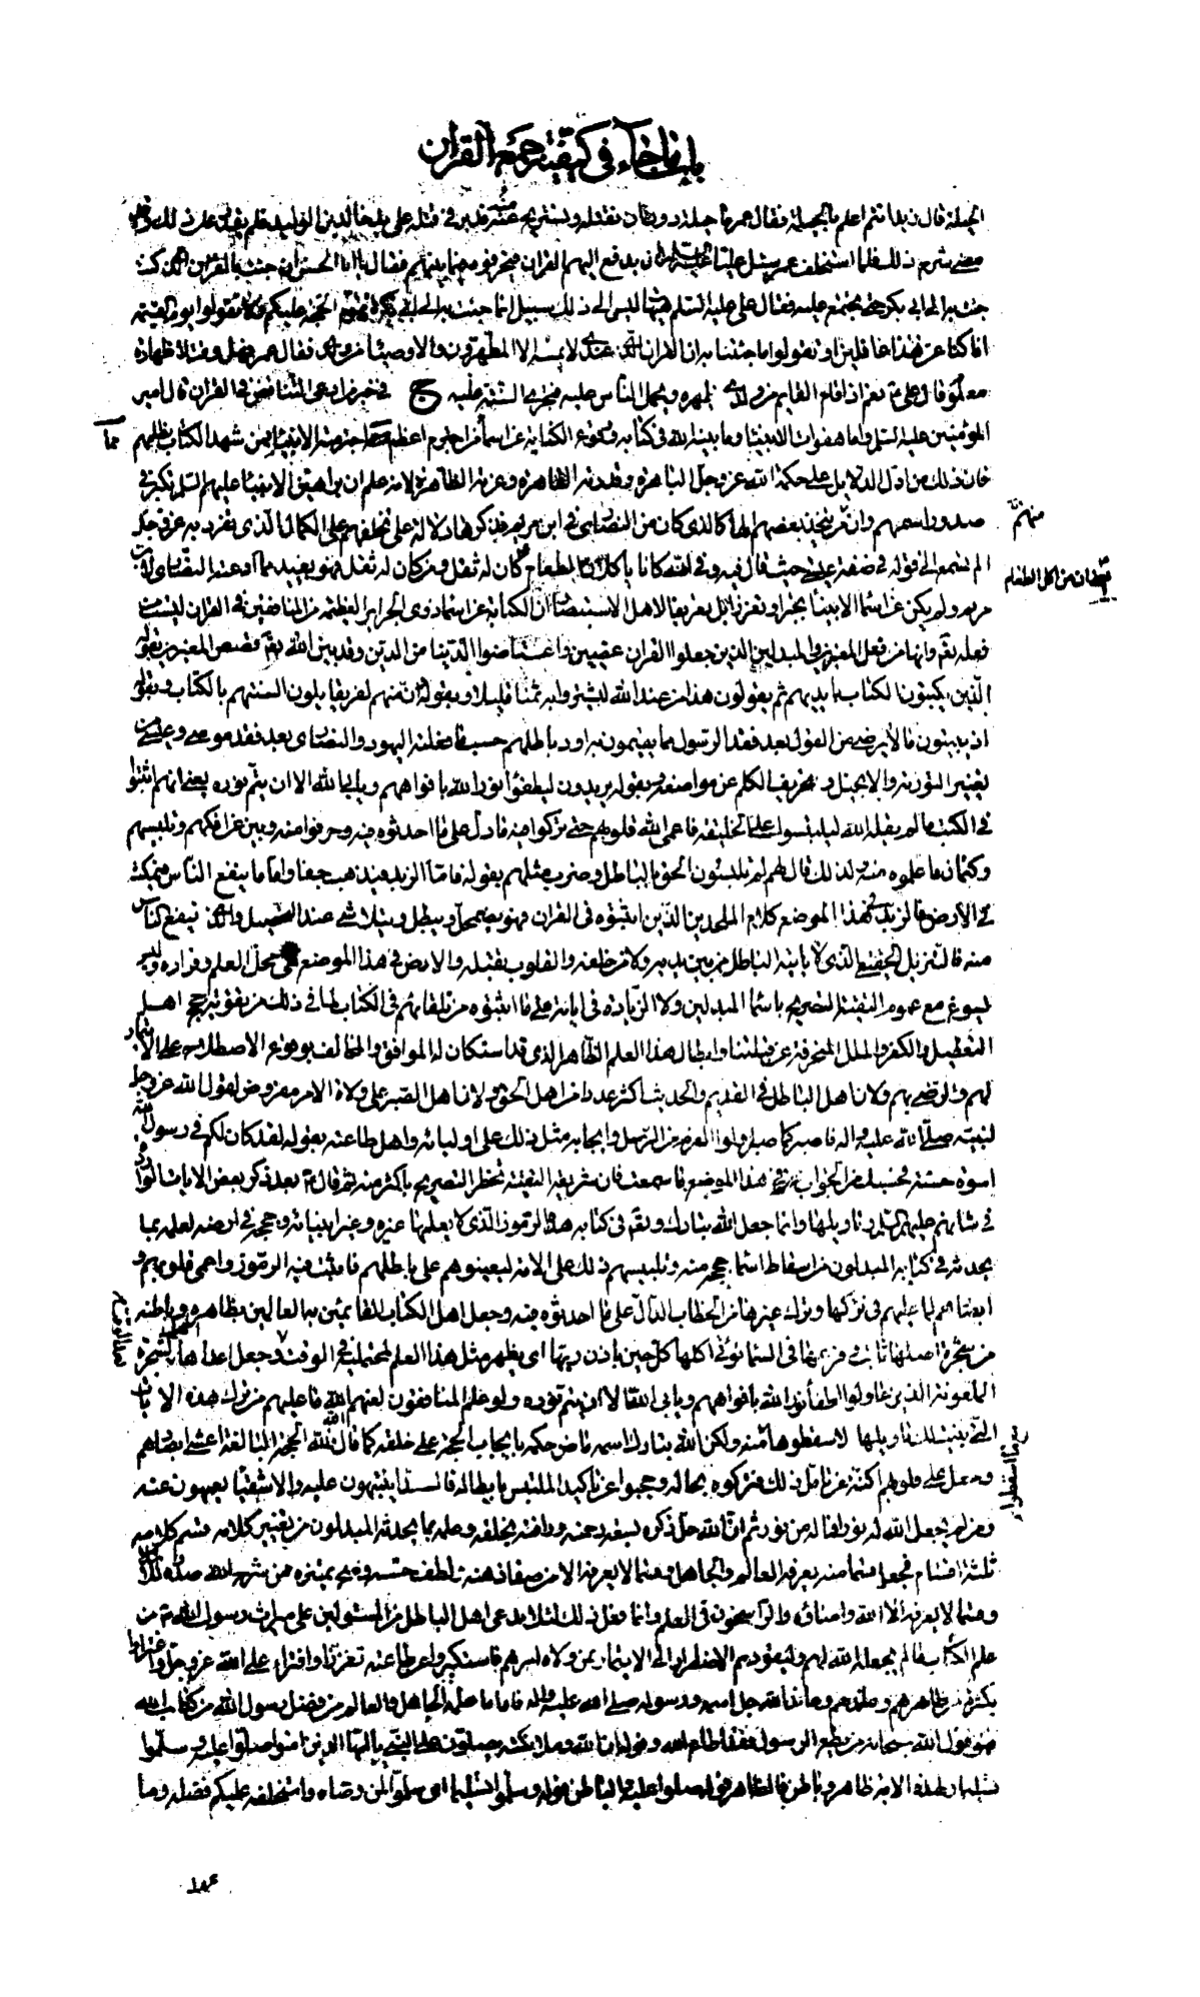 باب ما جاء في كيفية جمع القرآن
الحيلة قال زيد انتم اعلم بالحيلة فقال عمر ما حيلة دون ان نقتله ونستريح منه فدبر في قتله على يد خالد بن الوليد فلم يقدر على ذلك وقد
مضى شرح ذلك فلما استخلف عمر سئل عليا ان يدفع اليهم القرآن فيحرفوه فيما بينهم فقال يا ابا الحسن ان جئت بالقرآن الذي كنت
جئت به الى ابي بكر حتى نجتمع عليه فقال علي عليه السلم هيهات ليس الى ذلك سبيل انما جئت به الى ابي بكر لتقوم الحجة عليكم ولا تقولوا يوم القيمة
انا كنا عن هذا غافلين او تقولوا ما جئتنا به ان القرآن الذي عندي لا يمسه الا المطهرون والاوصياء من ولدي فقال عمر فهل وقت لاظهاره
معلوم قال علي ع نعم اذا قام القايم من ولدي يظهره ويحمل الناس عليه فتجري السنة عليه ج في خبر من ادعى التناقض في القرآن قال امير
المؤمنين عليه السلم واما هفوات الانبياء وما بينه الله في كتابه ووقوع الكناية عن اسماء من اجترم اعظم مما اجترمته الانبياء ممن شهد الكتاب بظلمهم
فان ذلك من ادل الدلايل على حكمة الله عز وجل الباهرة وقدرته القاهرة وعزته الظاهرة لانه علم ان براهين الانبياء عليهم السلم تكبر في
صدور اممهم وان منهم من يتخذ بعضهم الها كالذي كان من النصارى في ابن مريم فذكرها دلالة على تخلفهم على الكمال الذي تفرد به عز وجل
الم تسمع الى قوله في صفة عيسى حيث قال فيه وفي امه كانا ياكلان الطعام يعني ان من اكل الطعام كان له ثفل ومن كان له ثفل فهو بعيد مما ادعته النصارى لابن
مريم ولم يكن عن اسماء الانبياء تجبرا وتعززا بل تعريفا لاهل الاستبصار ان الكناية عن اسماء ذوي الجراير العظيمة من المنافقين في القرآن ليست من
فعله تعالى وانها من فعل المغيرين والمبدلين الذين جعلوا القرآن عضين واعتاضوا الدنيا من الدين وقد بين الله تعالى قصص المغيرين بقوله
الذين يكتبون الكتاب بايديهم ثم يقولون هذا من عند الله ليشتروا به ثمنا قليلا وبقوله وان منهم لفريقا يلوون السنتهم بالكتاب وبقوله
اذ يبيتون ما لا يرضى من القول بعد فقد الرسول مما يقيمون به اود باطلهم حسب ما فعلته اليهود والنصارى بعد فقد موسى وعيسى من
تغيير التورية والانجيل وتحريف الكلم عن مواضعه وبقوله يريدون ليطفئوا نور الله بافواههم ويابى الله الا ان يتم نوره يعني انهم اثبتوا
في الكتاب ما لم يقله الله ليلبسوا على الخليقة فاعمى الله قلوبهم حتى تركوا فيه ما دل على ما احدثوه فيه وحرفوا منه وبين عن افكهم وتلبيسهم
وكتمان ما علموه منه ولذلك قال لهم لم تلبسون الحق بالباطل وضرب مثلهم بقوله فاما الزبد فيذهب جفاء واما ما ينفع الناس فيمكث
في الارض فالزبد في هذا الموضع كلام الملحدين الذين اثبتوه في القرآن فهو يضمحل ويبطل ويتلاشى عند التحصيل والذي ينفع الناس
منه فالتنزيل الحقيقي الذي لا ياتيه الباطل من بين يديه ولا من خلفه والقلوب تقبله والارض في هذا الموضع هي محل العلم وقراره وليس
يسوغ مع عموم التقية التصريح باسماء المبدلين ولا الزيادة في اياته على ما اثبتوه من تلقائهم في الكتاب لما في ذلك من تقوية حجج اهل
التعطيل والكفر والملل المنحرفة عن قبلتنا وابطال هذا العلم الظاهر الذي قد استكان له الموافق والمخالف بوقوع الاصطلاح على الايتمار
لهم والرضى بهم ولان اهل الباطل في القديم والحديث اكثر عددا من اهل الحق ولان الصبر على ولاة الامر مفروض لقول الله عز وجل
لنبيه صلى الله عليه واله فاصبر كما صبر اولوا العزم من الرسل وايجابه مثل ذلك على اوليائه واهل طاعته بقوله لقد كان لكم في رسول الله
اسوة حسنة فحسبك من الجواب عن هذا الموضع ما سمعت فان شريعة التقية تحظر التصريح باكثر منه ثم قال ع بعد ذكر بعض الايات الواردة
في شانهم عليهم السلم وتاويلها وانما جعل الله تبارك وتعالى في كتابه هذه الرموز التي لا يعلمها غيره وغير انبيائه وحججه في ارضه لعلمه بما
يحدثه في كتابه المبدلون من اسقاط اسماء حججه منه وتلبيسهم ذلك على الامة ليعينوهم على باطلهم فاثبت فيه الرموز واعمى قلوبهم و
ابصارهم لما عليهم في تركها وترك غيرها من الخطاب الدال على ما احدثوه فيه وجعل اهل الكتاب القائمين به العالمين بظاهره وباطنه
من شجرة اصلها ثابت وفرعها في السماء تؤتي اكلها كل حين باذن ربها اي يظهر مثل هذا العلم لمحتمليه في الوقت وجعل اعداءها اهل الشجرة
الملعونة الذين حاولوا اطفاء نور الله بافواههم ويابى الله الا ان يتم نوره ولو علم المنافقون لعنهم الله ما عليهم من ترك هذه الايات
التي بينت لك تاويلها لاسقطوها مع ما اسقطوا منه ولكن الله تبارك اسمه ماض حكمه بايجاب الحجة على خلقه كما قال فلله الحجة البالغة اغشى ابصارهم
وجعل على قلوبهم اكنة عن تامل ذلك فتركوه بحاله وحجبوا عن تاكيد الملتبس بابطاله فالسعداء ينتبهون عليه والاشقياء يعمهون عنه
ومن لم يجعل الله له نورا فما له من نور ثم ان الله جل ذكره لسعة رحمته ورافته بخلقه وعلمه بما يحدثه المبدلون من تغيير كلامه قسم كلامه
ثلثة اقسام فجعل قسما منه يعرفه العالم والجاهل وقسما لا يعرفه الا من صفا ذهنه ولطف حسه وصح تميزه ممن شرح الله صدره للاسلام
وقسما لا يعرفه الا الله وامناؤه والراسخون في العلم وانما فعل ذلك لئلا يدعي اهل الباطل من المستولين على ميراث رسول الله ص من
علم الكتاب ما لم يجعله الله لهم وليقودهم الاضطرار الى الايتمار بمن ولاه امرهم فاستكبروا عن طاعته تعززا وافتراء على الله عز وجل واغترارا
بكثرة من ظاهرهم وعاونهم وعاند الله جل اسمه ورسوله صلى الله عليه واله فاما ما علمه الجاهل والعالم من فضل رسول الله من كتاب الله
فهو قول الله سبحانه من يطع الرسول فقد اطاع الله وقوله ان الله وملائكته يصلون على النبي يا ايها الذين امنوا صلوا عليه وسلموا
تسليما ولهذه الاية ظاهر وباطن فالظاهر قوله صلوا عليه والباطن قوله وسلموا تسليما اي سلموا لمن وصاه واستخلفه عليكم فضله وما